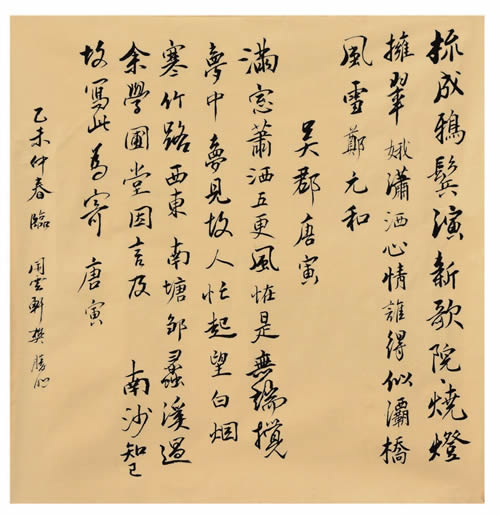 梳成鴉鬢演新歌院燒燈
擁翠娥瀟洒心情誰得似灞橋
風雪鄭元和
吴郡唐寅
滿窓蕭洒五更風恠是無端攪
夢中夢見故人忙起望白烟
寒竹路西東南塘鄒蠡溪過
余學圃堂因言及南沙知己
故寫此為寄唐寅
乙未仲春臨